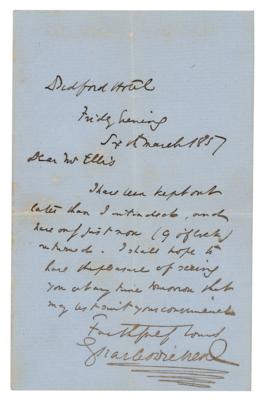 Bedford Hotel
Friday Evening
Sixth March 1857
Dear Mr Ellis
I have been kept out
later than I intended, and
have only just now (9 o'clock)
returned. I shall hope to
have the pleasure of seeing
you at any time tomorrow that
may best suit your convenience
Faithfully Yours
Charles Dickens